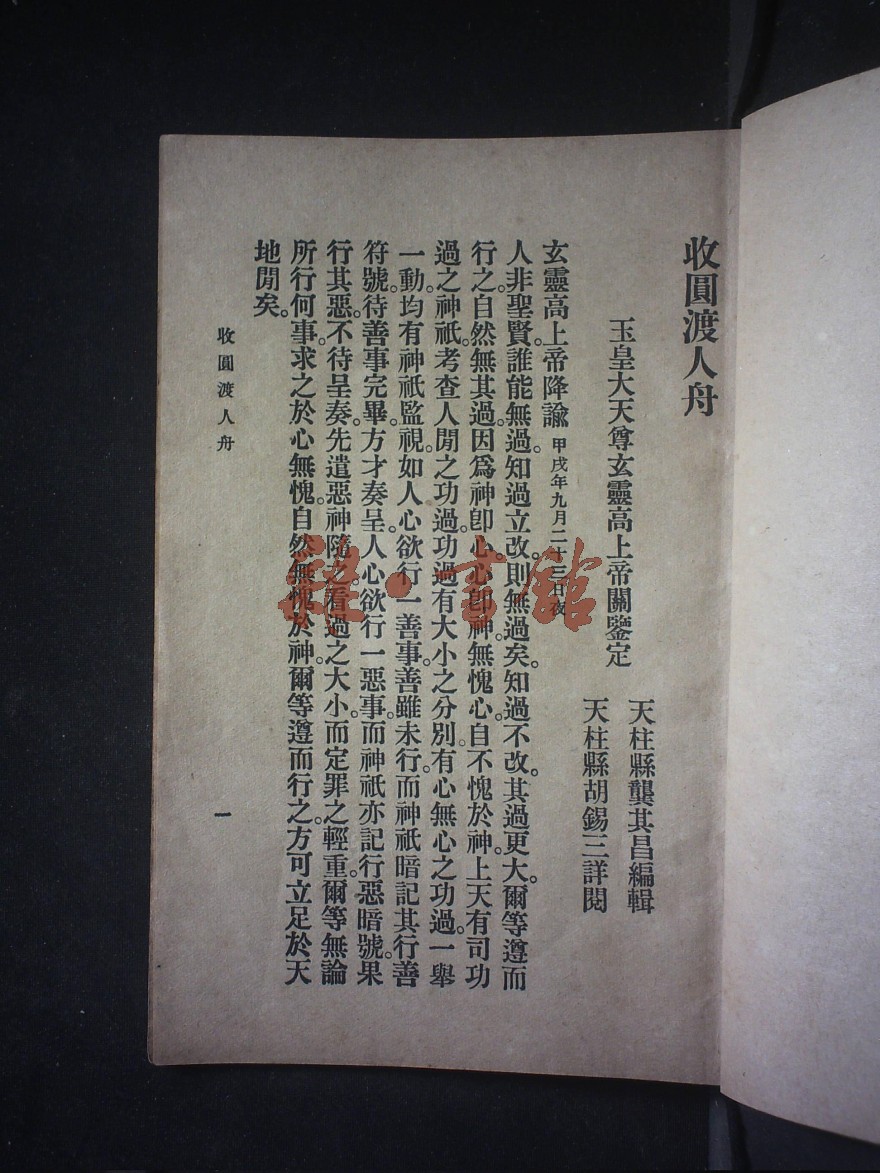 收圓渡人舟
玉皇大天尊玄靈高上帝關鑒定
天柱縣龔其昌編輯
天柱縣胡錫三詳閱
玄靈高上帝降諭。甲戌年九月二十三日夜
人非聖賢。誰能無過。知過立改。則無過矣。知過不改。其過更大。爾等遵而
行之。自然無其過。因爲神卽心。心卽神。無愧心。自不愧於神。上天有司功
過之神祇。考查人間之功過。功過有大小之分別。有心無心之功過。一舉
一動。均有神祇監視。如人心欲行一善事。善雖未行。而神祇暗記其行善
符號。待善事完畢。方才奏呈。人心欲行一惡事。而神祇亦記行惡暗號。果
行其惡。不待呈奏。先遣惡神隨之。看過之大小。而定罪之輕重。爾等無論
所行何事。求之於心無愧。自然無愧於神。爾等遵而行之。方可立足於天
地間矣。
收圓渡人舟
一
書館